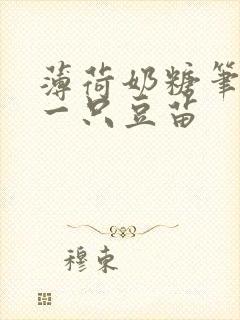 薄荷奶糖笔
一只豆苗
穆東